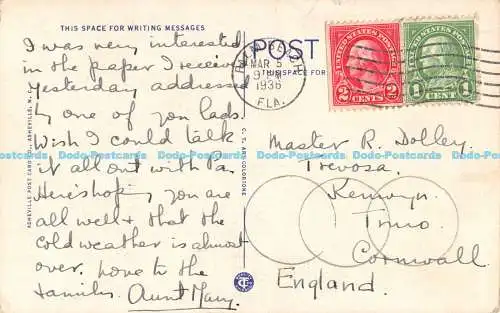 THIS SPACE FOR WRITING MESSAGES
I was very interested
in the paper I received
yesterday addressed
by one of you lads.
Wish I could talk
it all out with Pa
Here's hoping you are
all well & that the
cold weather is almost
over. Love to the
families. Aunt Mary.
ASHEVILLE POST CARD CO., ASHEVILLE, N. C.
C. T. ART-COLORTONE
POST
THIS SPACE FOR
PALM BEACH
MAR 5
9 PM
1936
FLA.
UNITED STATES POSTAGE
2 CENTS 2
UNITED STATES POSTAGE
1 CENT 1
Master R. Dolley.
Trevosa.
Kenwyn.
Truro
Cornwall
England.
Dodo-Postcards Dodo-Postcards Dodo-Postcards Dodo-Postcards Dodo-Postcards